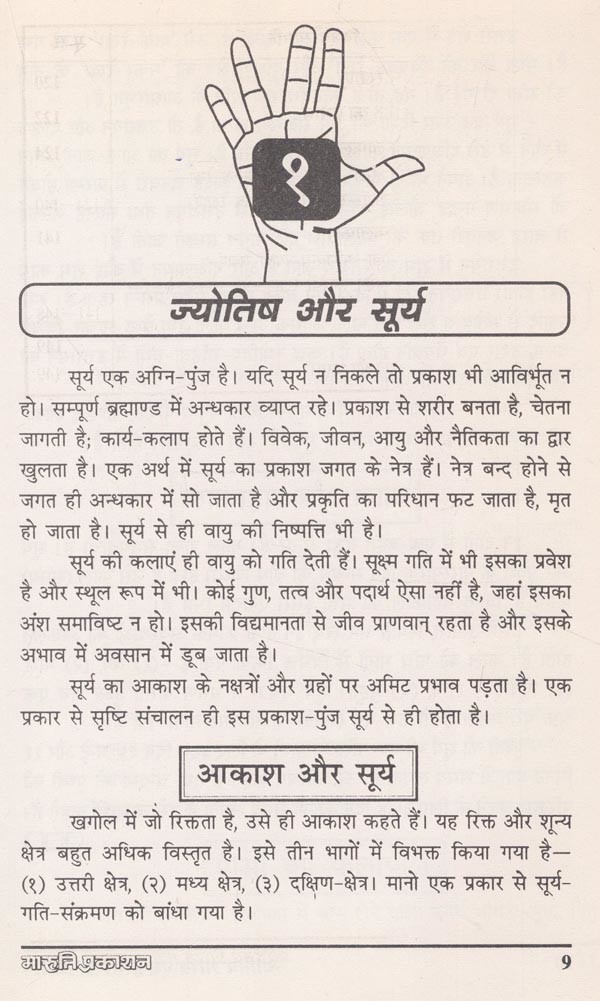 १
ज्योतिष और सूर्य
सूर्य एक अग्नि-पुंज है। यदि सूर्य न निकले तो प्रकाश भी आविर्भूत न
हो। सम्पूर्ण ब्रह्माण्ड में अन्धकार व्याप्त रहे। प्रकाश से शरीर बनता है, चेतना
जागती है; कार्य-कलाप होते हैं। विवेक, जीवन, आयु और नैतिकता का द्वार
खुलता है। एक अर्थ में सूर्य का प्रकाश जगत के नेत्र हैं। नेत्र बन्द होने से
जगत ही अन्धकार में सो जाता है और प्रकृति का परिधान फट जाता है, मृत
हो जाता है। सूर्य से ही वायु की निष्पत्ति भी है।
सूर्य की कलाएं ही वायु को गति देती हैं। सूक्ष्म गति में भी इसका प्रवेश
है और स्थूल रूप में भी। कोई गुण, तत्व और पदार्थ ऐसा नहीं है, जहां इसका
अंश समाविष्ट न हो। इसकी विद्यमानता से जीव प्राणवान् रहता है और इसके
अभाव में अवसान में डूब जाता है।
सूर्य का आकाश के नक्षत्रों और ग्रहों पर अमिट प्रभाव पड़ता है। एक
प्रकार से सृष्टि संचालन ही इस प्रकाश-पुंज सूर्य से ही होता है।
आकाश और सूर्य
खगोल में जो रिक्तता है, उसे ही आकाश कहते हैं। यह रिक्त और शून्य
क्षेत्र बहुत अधिक विस्तृत है। इसे तीन भागों में विभक्त किया गया है—
(१) उत्तरी क्षेत्र, (२) मध्य क्षेत्र, (३) दक्षिण-क्षेत्र। मानो एक प्रकार से सूर्य-
गति-संक्रमण को बांधा गया है।
मारुति प्रकाशन 9